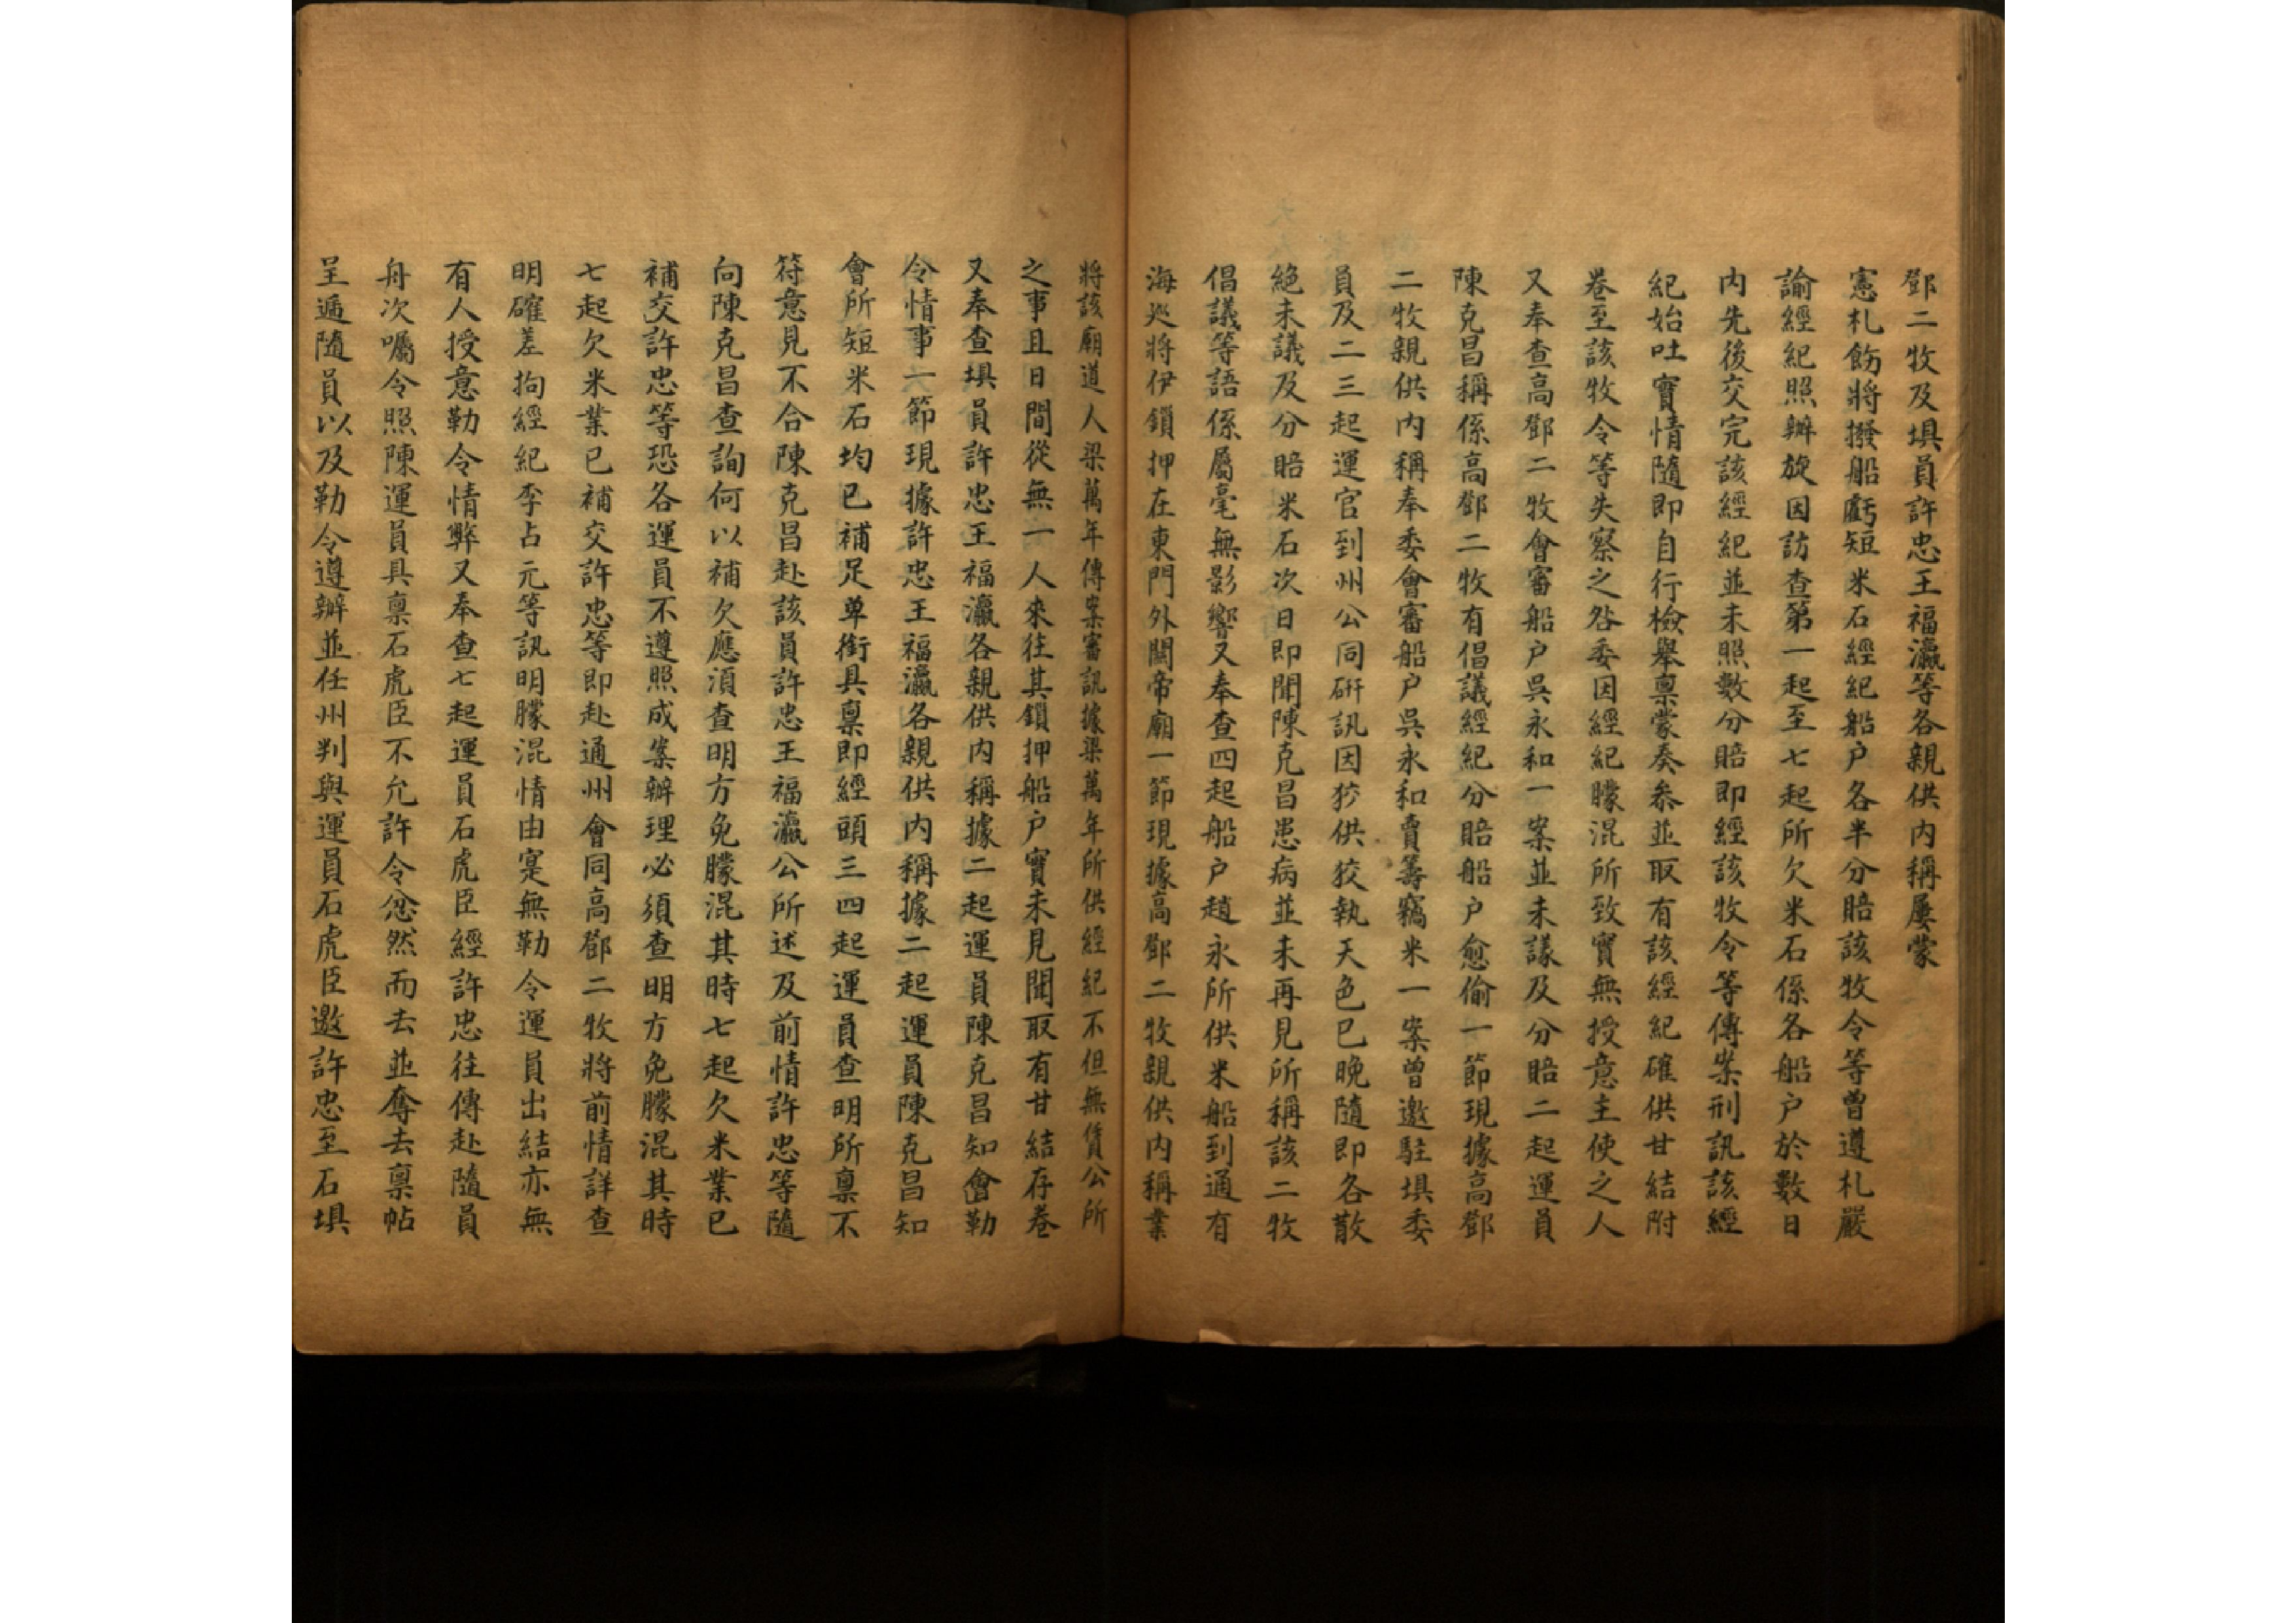 鄧二牧及埧員許忠王福瀛等各親供内稱屢蒙
憲札飭將撥船虧短米石經紀船户各半分賠該牧令等曾遵札嚴
諭經紀照辦旋因訪查第一起至七起所欠米石係各船户於數日
内先後交完該經紀並未照數分賠即經該牧令等傳案刑訊該經
紀始吐實情隨即自行檢舉禀蒙奏叅並取有該經紀確供甘結附
卷至該牧令等失察之咎委因經紀朦混所致實無授意主使之人
又奉查高鄧二牧會審船户吳永和一案並未議及分賠二起運員
陳克昌稱係高鄧二牧有倡議經紀分賠船户愈偷一節現據高鄧
二牧親供内稱奉委會審船户吳永和賣籌竊米一案曾邀駐埧委
員及二三起運官到州公同研訊因狡供狡執天色已晚隨即各散
絕未議及分賠米石次日即聞陳克昌患病並未再見所稱該二牧
倡議等語係屬毫無影響又奉查四起船户趙永所供米船到通有
海廵將伊鎖押在東門外關帝廟一節現據高鄧二牧親供内稱業
將該廟道人梁萬年傳案審訊據梁萬年所供經紀不但無賃公所
之事且日間從無一人來往其鎖押船户實未見聞取有甘結存卷
又奉查埧員許忠王福瀛各親供内稱據二起運員陳克昌知會勒
令情事一節現據許忠王福瀛各親供内稱據二起運員陳克昌知
會所短米石均已補足单銜具禀即經頭三四起運員查明所禀不
符意見不合陳克昌赴該員許忠王福瀛公所述及前情許忠等隨
向陳克昌查詢何以補欠應須查明方免朦混其時七起欠米業已
補交許忠等恐各運員不遵照成案辦理必須查明方免朦混其時
七起欠米業已補交許忠等即赴通州會同高鄧二牧將前情詳查
明確差拘經紀李占元等訊明朦混情由寔無勒令運員出結亦無
有人授意勒令情弊又奉查七起運員石虎臣經許忠往傳赴隨員
舟次囑令照陳運員具禀石虎臣不允許令忿然而去並奪去禀帖
呈遞隨員以及勒令遵辦並任州判與運員石虎臣邀許忠至石埧